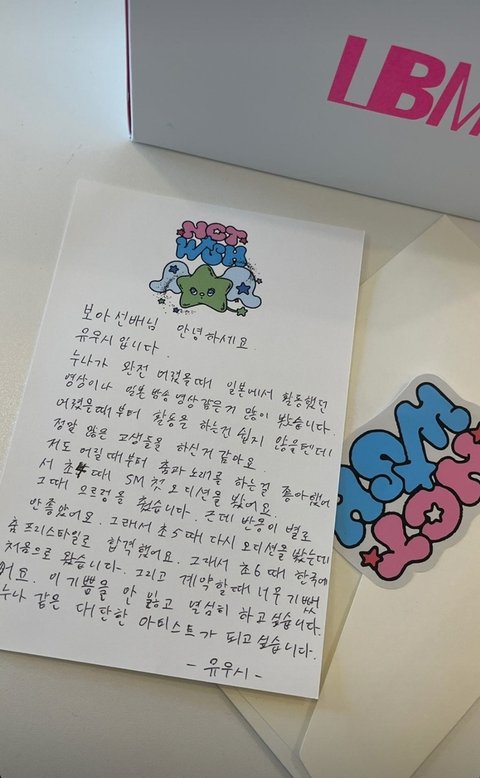 LBM
NCT
WISH
보아선배님 안녕하세요
유우시입니다.
누나가 완전 어렸을때 일본에서 활동했던
영상이나 일본 방송영상같은거 많이 봤습니다.
어렸을때부터 활동을 하는건 쉽지 않을텐데
정말 많은 고생들을 하신거 같아요.
저도 어릴때부터 춤과노래를 하는걸 좋아했어
서 초4때 SM 첫 오디션을 봤어요.
그때 으르렁을 췄습니다. 근데 반응이 별로
안좋았어요. 그래서 초5때 다시 오디션을 봤는데
춤 프리스타일로 합격했어요. 그래서 초6때 한국에
처음으로 왔습니다. 그리고 계약할때 너무 기뻤
어요. 이 기쁨을 안 잃고 열심히 하고싶습니다.
누나 같은 대단한 아티스트가 되고싶습니다.
- 유우시 -
NCT
WISH